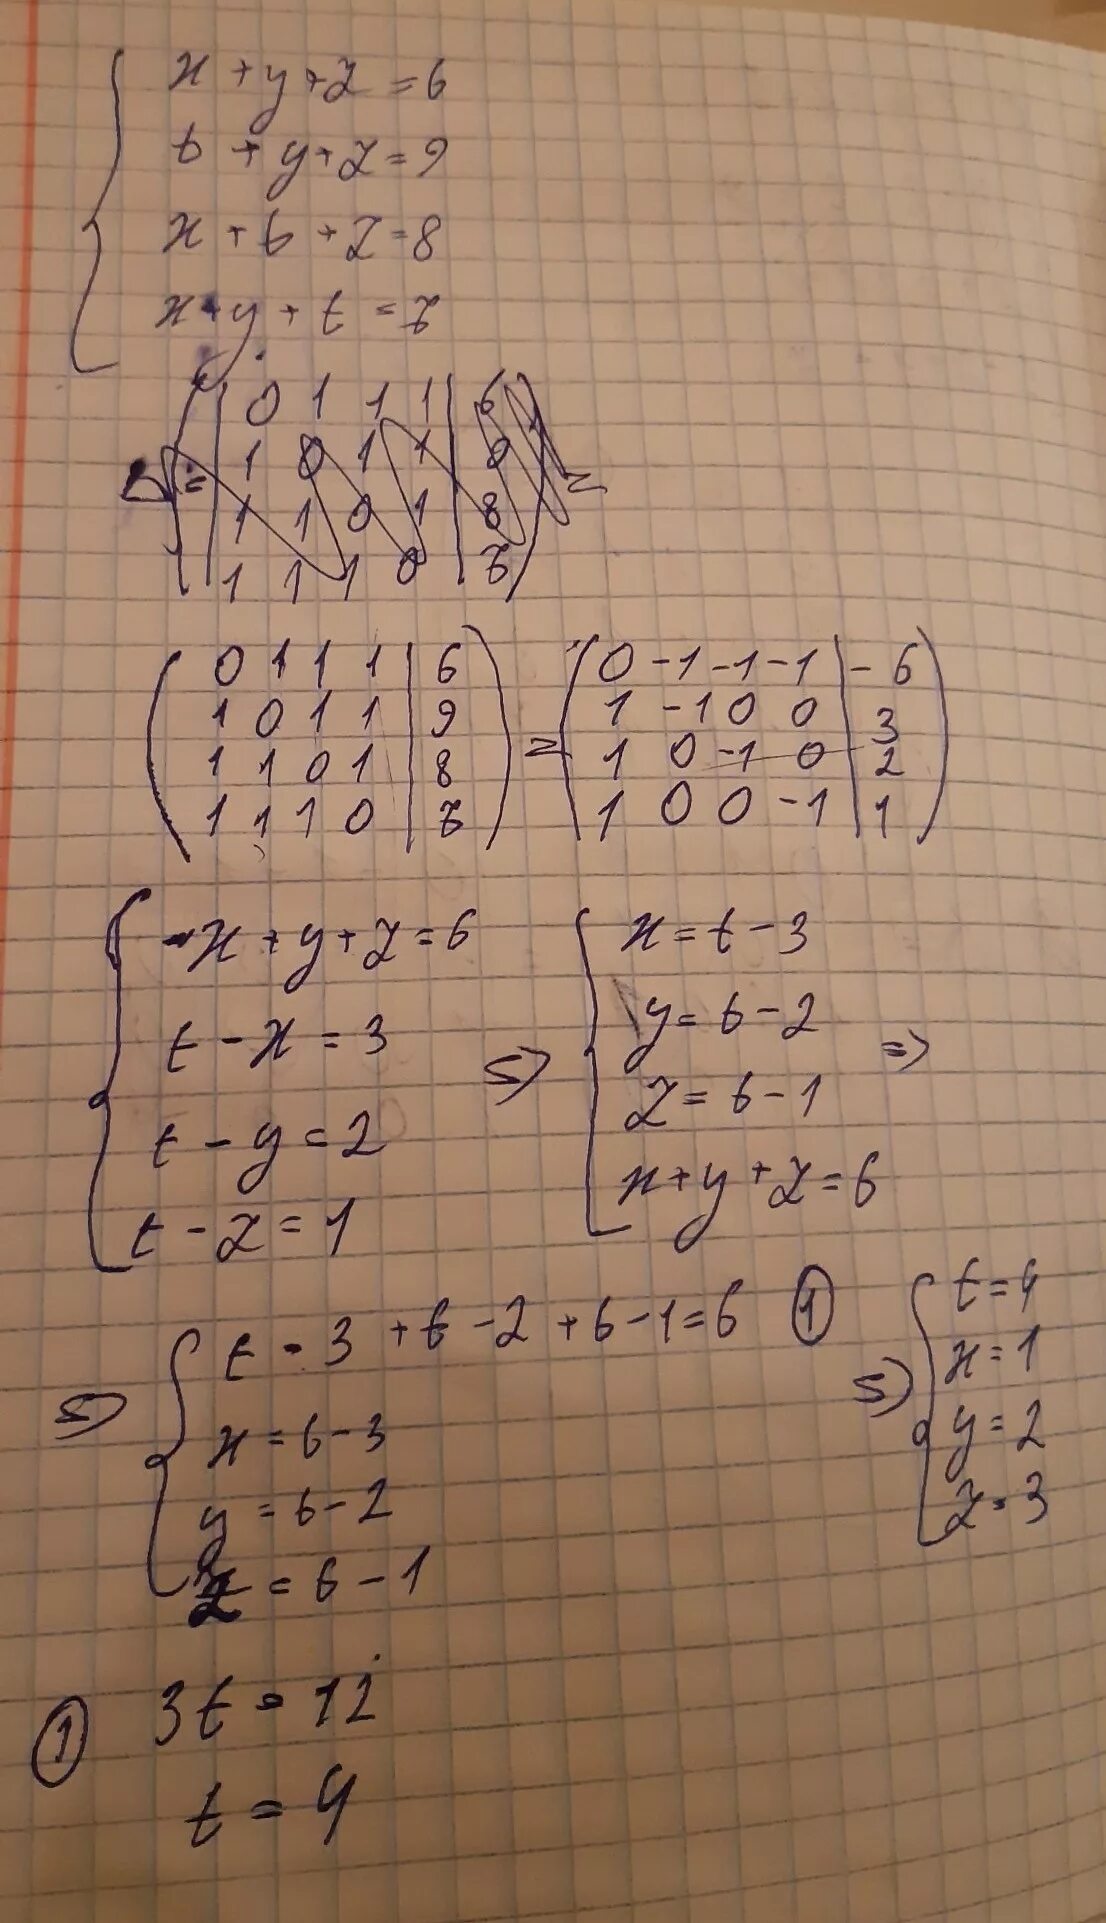 x + y + z = 6
t + y + z = 9
x + t + z = 8
x + y + t = 7
0 1 1 1 | 6
1 0 1 1 | 9
1 1 0 1 | 8
1 1 1 0 | 7
( 0 1 1 1 | 6 ) = ( 0 -1 -1 -1 | -6 )
1 0 1 1 | 9 1 -1 0 0 | 3
1 1 0 1 | 8 1 0 -1 0 | 2
1 1 1 0 | 7 1 0 0 -1 | 1
x + y + z = 6
t - x = 3
t - y = 2
t - z = 1
=> x = t - 3
y = t - 2
z = t - 1
x + y + z = 6 =>
=> t - 3 + t - 2 + t - 1 = 6 ①
x = t - 3
y = t - 2
z = t - 1
=> t = 4
x = 1
y = 2
z = 3
① 3t = 12
t = 4